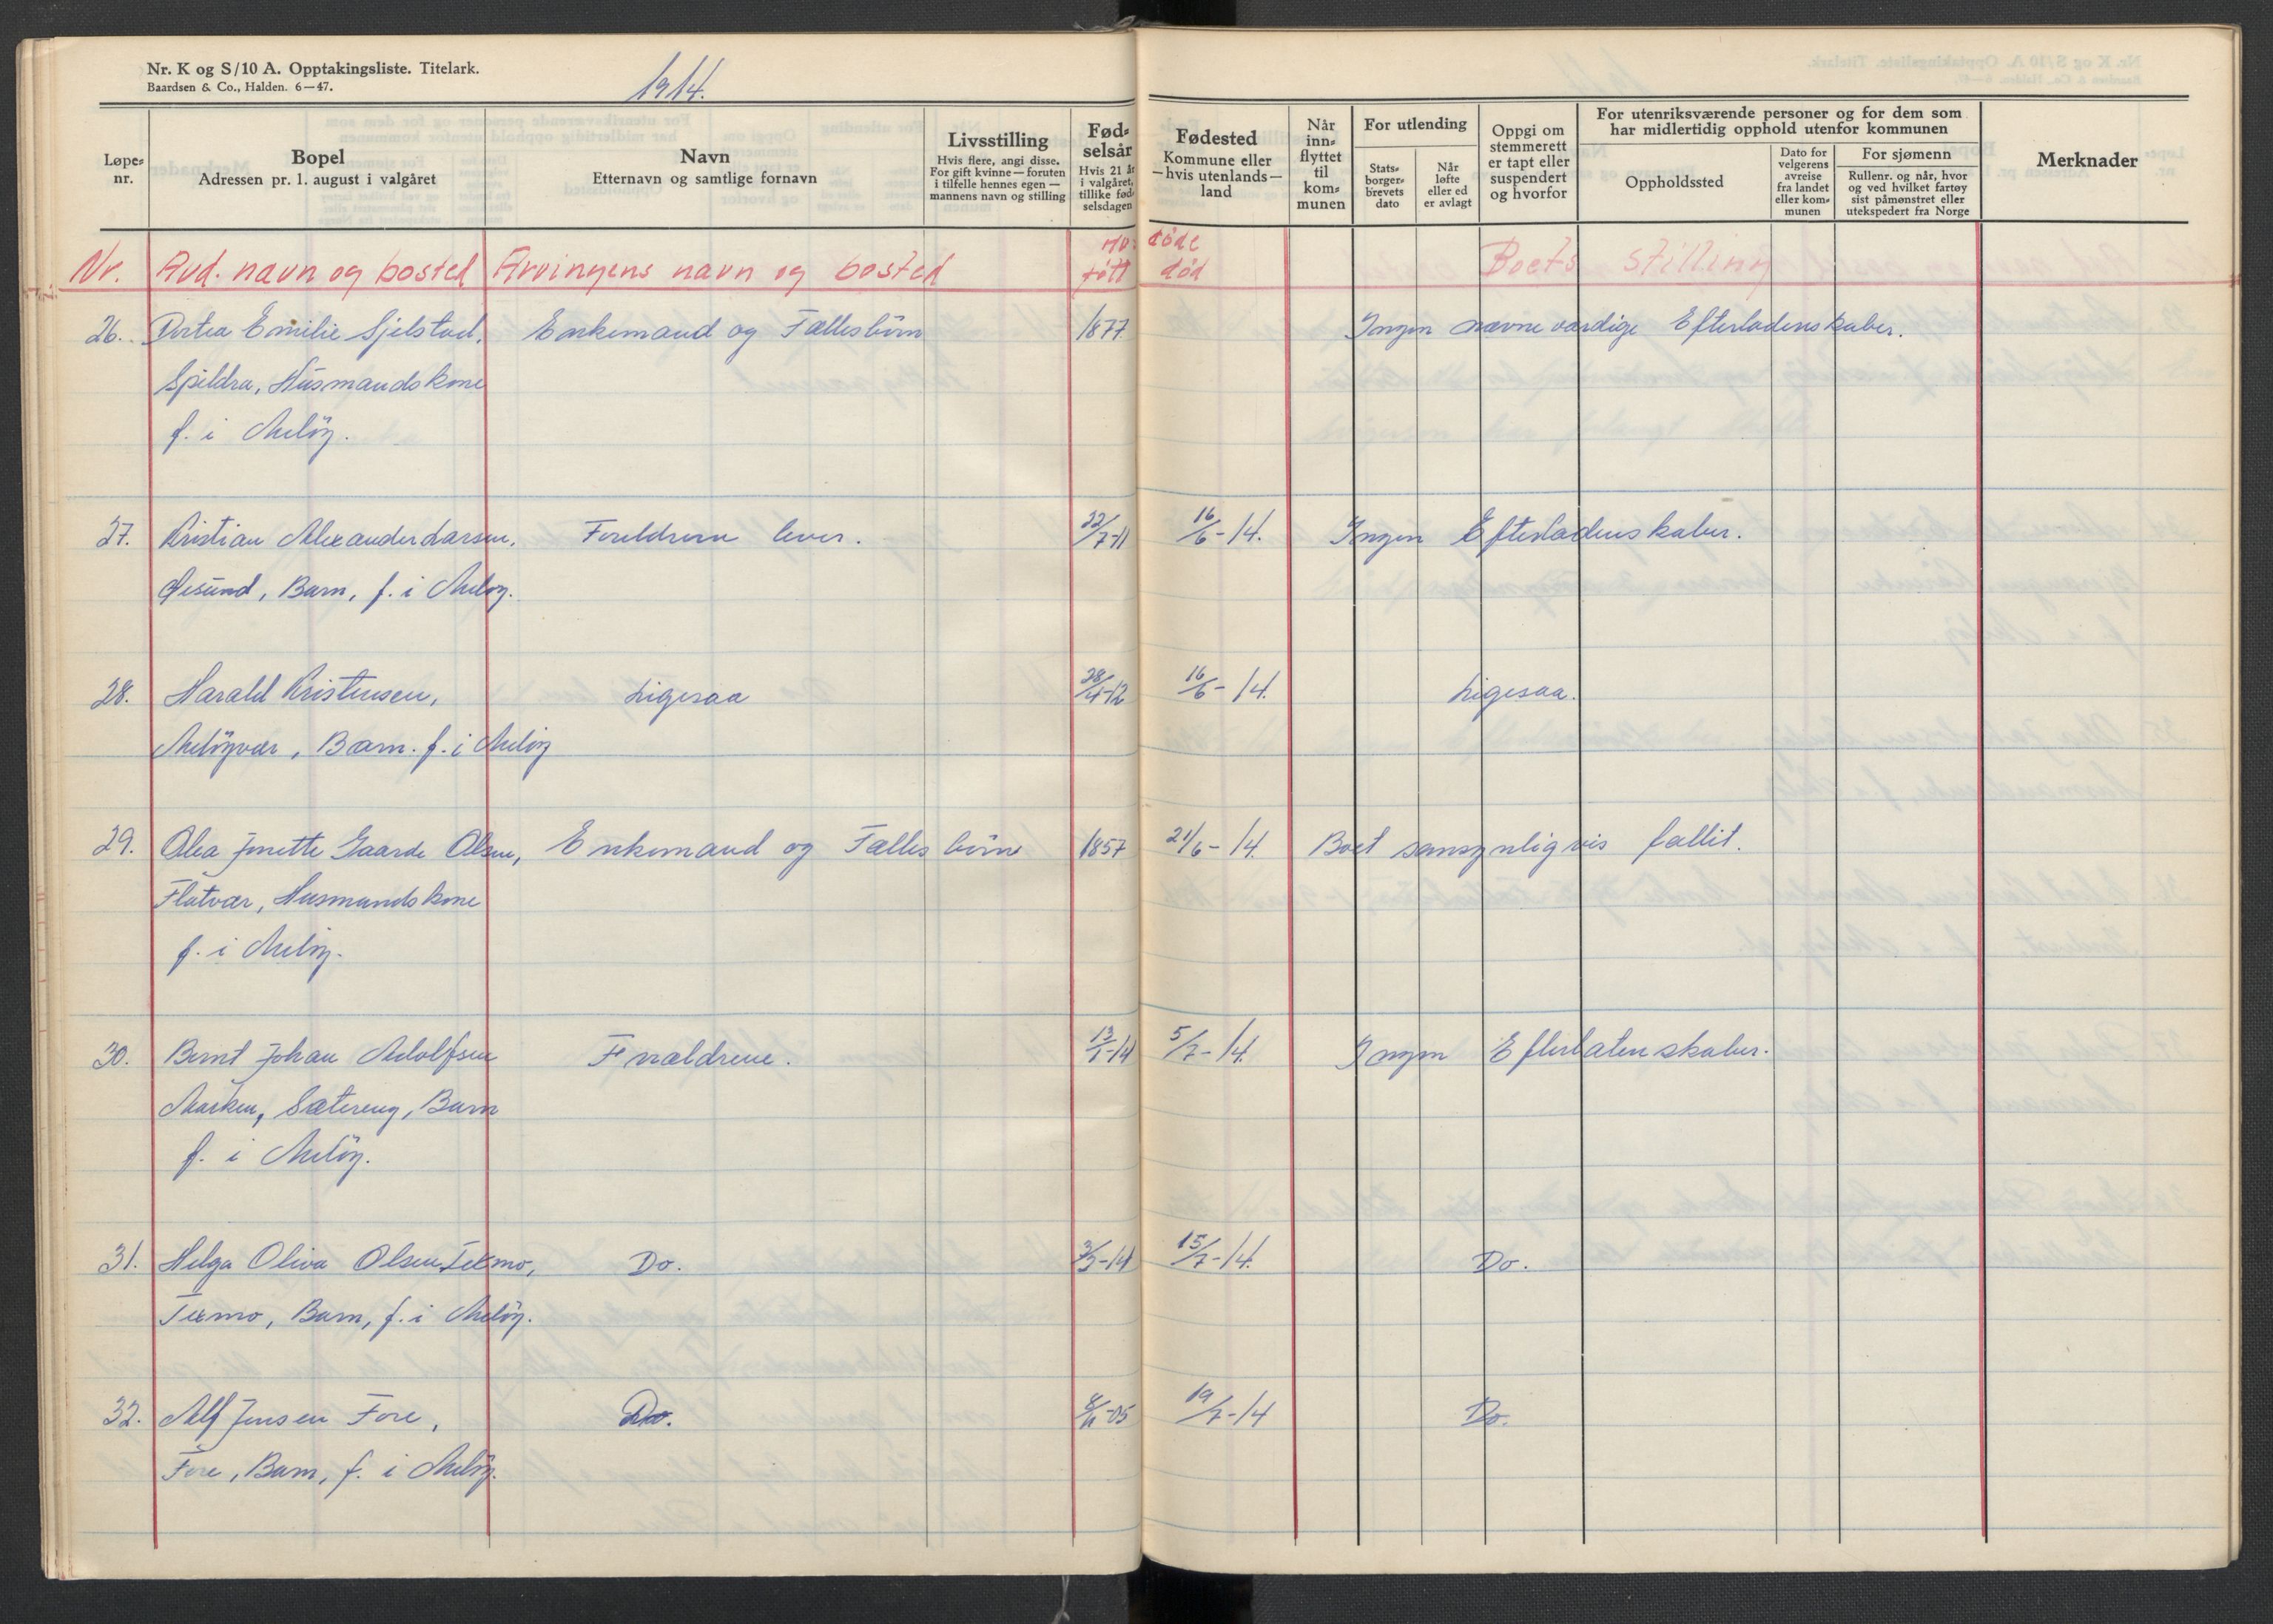 Nr. K og S/10 A. Opptakingsliste. Titelark.
Baardsen & Co., Halden. 6—47.
1914.
Løpe-nr.
Bopel
Adressen pr. 1. august i valgåret
Navn
Etternavn og samtlige fornavn
Livsstilling
Hvis flere, angi disse.
For gift kvinne — foruten
i tilfelle hennes egen —
mannens navn og stilling
Fød-
selsår
Hvis 21 år
i valgåret,
tillike fød-
selsdagen
Fødested
Kommune eller
— hvis utenlands —
land
Når
inn-
flyttet
til
kom-
munen
For utlending
Stats-
borger-
brevets
dato
Når
løfte
eller ed
er avlagt
Oppgi om
stemmerett
er tapt eller
suspendert
og hvorfor
For utenriksværende personer og for dem som
har midlertidig opphold utenfor kommunen
Oppholdssted
Dato for
velgerens
avreise
fra landet
eller kom-
munen
For sjømenn
Rullenr. og når, hvor
og ved hvilket fartøy
sist påmønstret eller
utekspedert fra Norge
Merknader
Nr. Avd. navn og bosted Arvingens navn og bosted født død Boets stilling
26. Dortea Emilie Sjelstad, Enkemand og Fællesbörn 1877. Ingen nævneværdige Efterladenskaber.
Spildra, Husmandskone
f. i Melöy.
27. Kristian Alexander Larsen, Foreldrene lever. 22/7-11 16/6-14. Ingen Efterladenskaber.
Öesund, Barn, f. i Melöy.
28. Harald Kristensen, Ligesaa 28/4-12 16/6-14. Ligesaa.
Melöyvær, Barn. f. i Melöy
29. Olea Jenette Gaarde Olsen, Enkemand og Fælles börn 1857 21/6-14. Boet sansynligvis fallit.
Flatvær, Husmandskone
f. i Melöy.
30. Bernt Johan Adolfsen Foræeldrene. 13/1-14 5/7-14. Ingen Efterlatenskaber.
Marken, Sætereng, Barn
f. i Melöy.
31. Helga Oliva Olsen Texmo, Do. 3/3-14 15/7-14. Do.
Texmo, Barn, f. i Melöy.
32. Alf Jensen Fore, Do. 19/7-14 Do.
Fore, Barn, f. i Melöy.